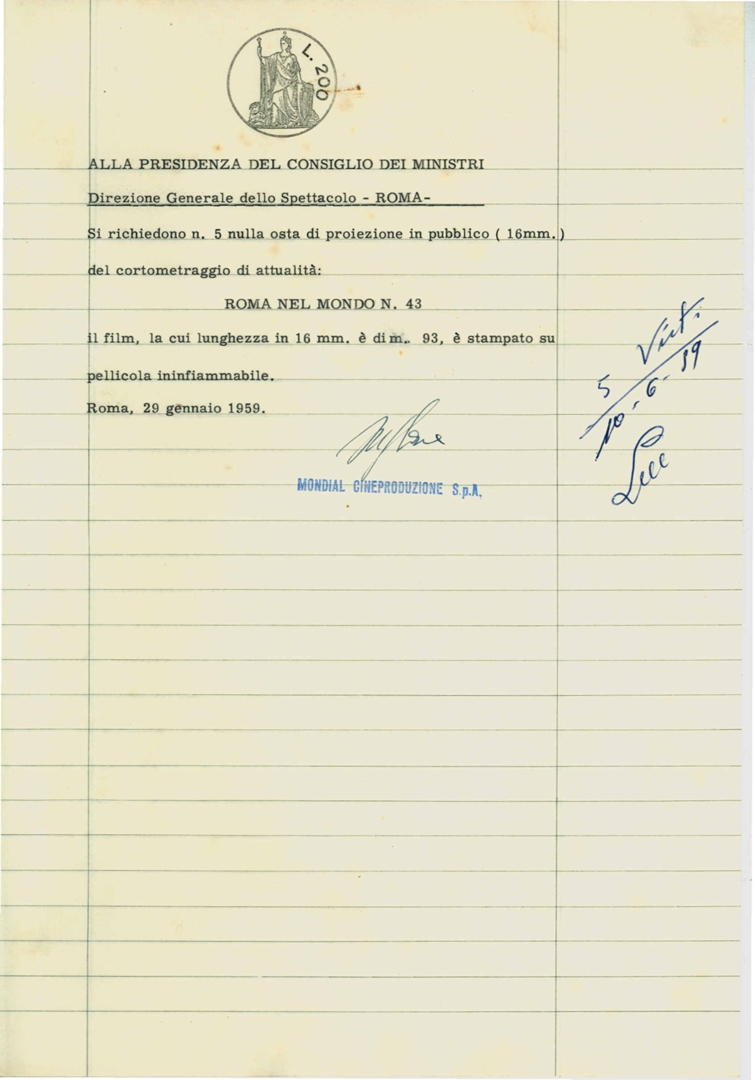 L. 200
ALLA PRESIDENZA DEL CONSIGLIO DEI MINISTRI
Direzione Generale dello Spettacolo - ROMA-
Si richiedono n. 5 nulla osta di proiezione in pubblico ( 16mm.)
del cortometraggio di attualità:
ROMA NEL MONDO N. 43
il film, la cui lunghezza in 16 mm. è di m. 93, è stampato su
pellicola ininfiammabile.
Roma, 29 gennaio 1959.
MONDIAL CINEPRODUZIONE S.p.A.
5 Vist.
10-6-59